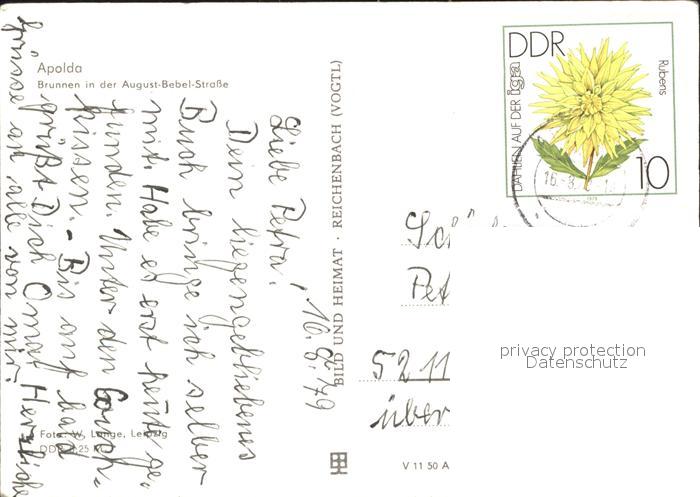 Apolda
Brunnen in der August-Bebel-Straße
16.8.79
Liebe Petra!
Dein liegengebliebenes
Buch bringe ich selber
mit. Habe es erst heute ge-
funden. Unter den Couch-
kissen. - Bis auf bald
grüßt Dich Oma! Herzliche
Grüsse an alle von mir!
Foto: W. Lange, Leipzig
BILD UND HEIMAT · REICHENBACH (VOGTL)
V 11 50 A
DDR
DAHLIEN AUF DER iga
Rubens
10
1979
16.-8.
Pet
5211
über
privacy protection
Datenschutz